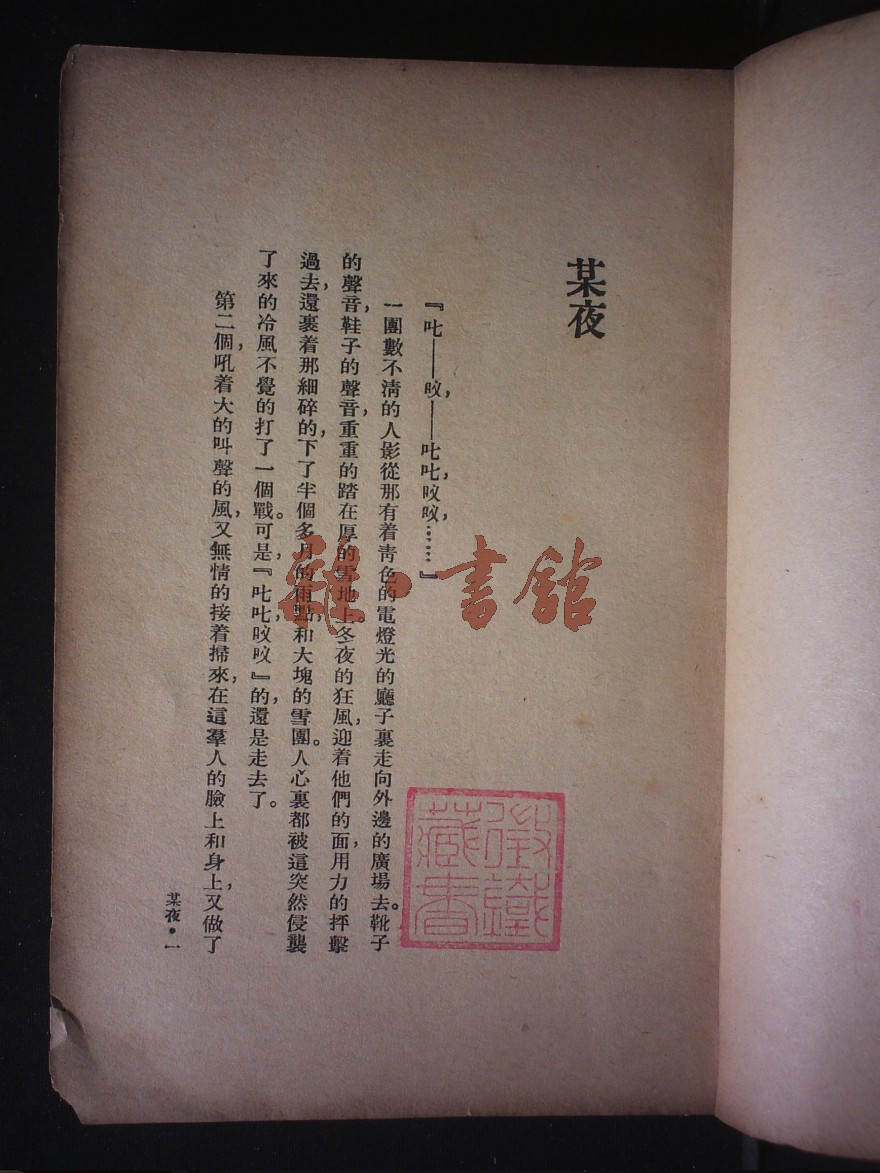 某夜
『叱——㕮，——叱叱，㕮㕮，……』
一團數不淸的人影從那有着靑色的電燈光的廳子裏走向外邊的廣場去。靴子
的聲音，鞋子的聲音，重重的踏在厚的雪地上。冬夜的狂風，迎着他們的面，用力的抨擊
過去，還裹着那細碎的，下了半個多月的雨點，和大塊的雪團。人心裏都被這突然侵襲
了來的冷風不覺的打了一個戰。可是，『叱叱，㕮㕮』的，還是走去了。
第二個，吼着大的叫聲的風，又無情的接着掃來，在這羣人的臉上和身上，又做了
某夜·一
雜·書館
藏書